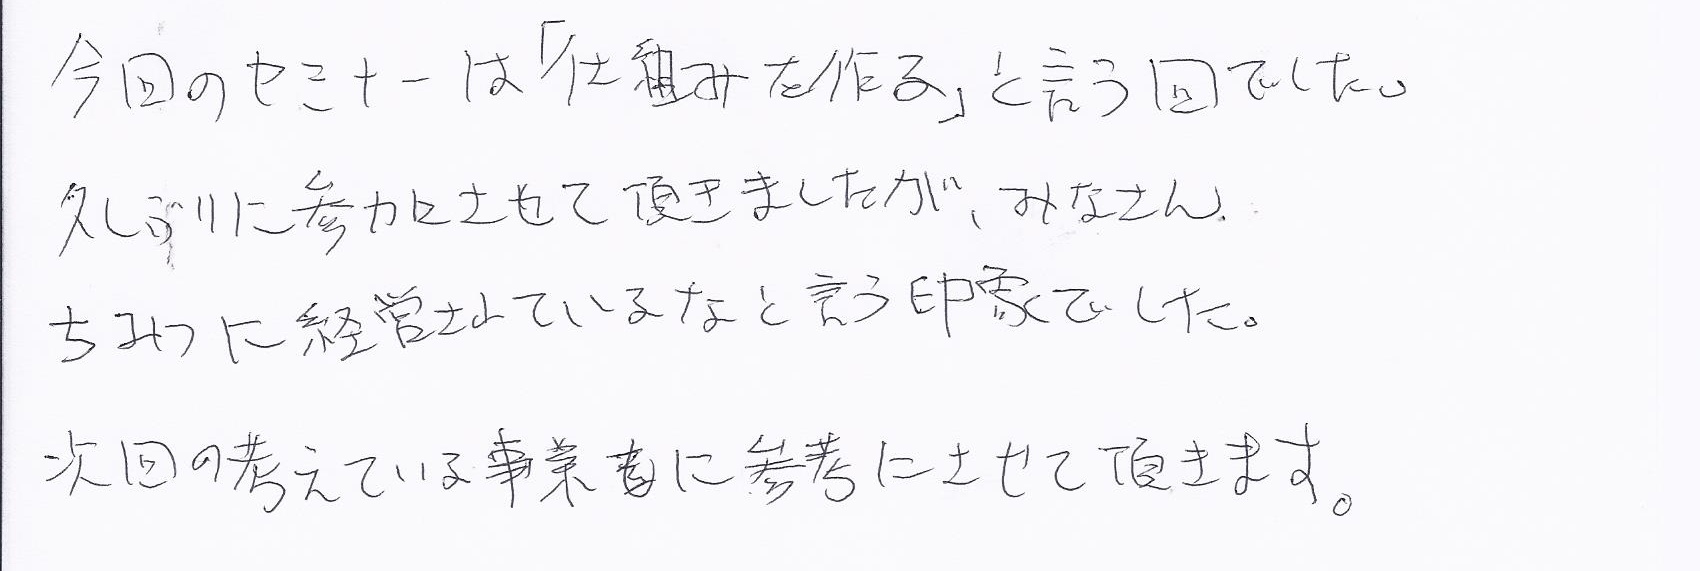 今回のセミナーは「仕組みを作る」と言う回でした。
久しぶりに参加させて頂きましたが、みなさん
ちみつに経営されているなと言う印象でした。
次回の考えている事業に参考にさせて頂きます。